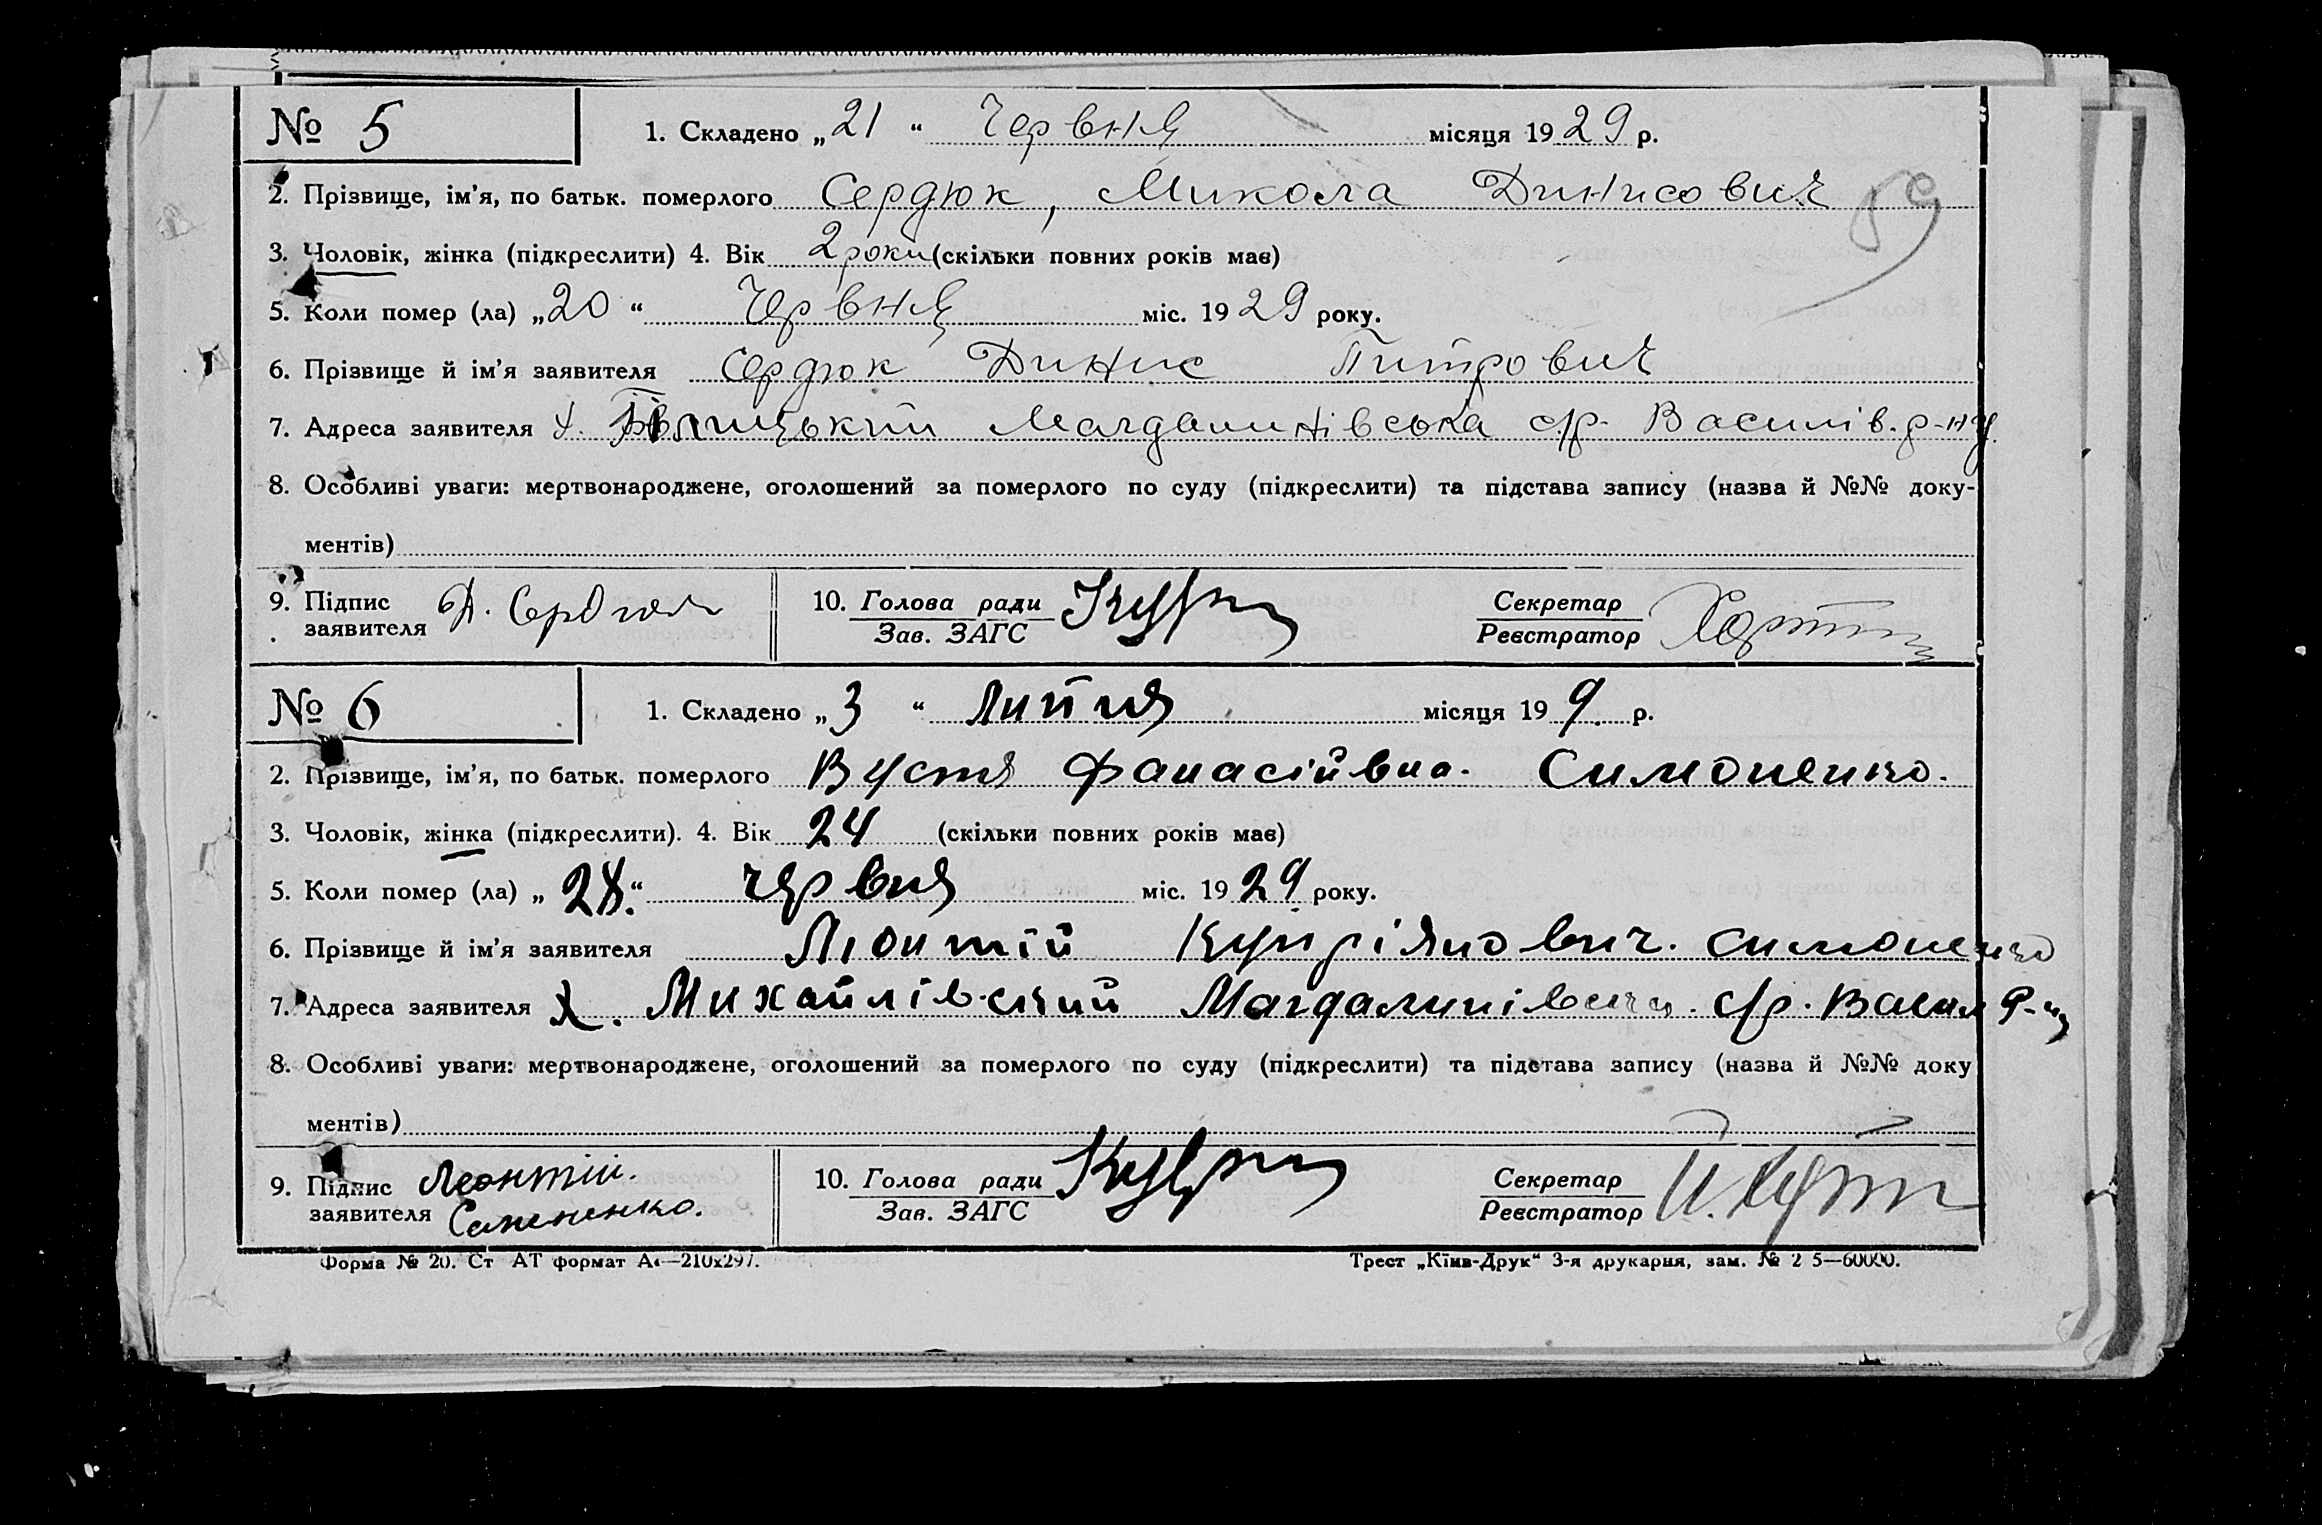 № 5 1. Складено „21“ Червня місяця 1929 р.
2. Прізвище, ім’я, по батьк. померлого Сердюк, Микола Динисович
59
3. Чоловік, жінка (підкреслити) 4. Вік 2 роки (скільки повних років має)
5. Коли помер (ла) „20“ Червня міс. 1929 року.
6. Прізвище й ім’я заявителя Сердюк Динис Питрович
7. Адреса заявителя х. Магдалинівська с/р. Василів. р-ну
8. Особливі уваги: мертвонароджене, оголошений за померлого по суду (підкреслити) та підстава запису (назва й №№ доку-
ментів)
9. Підпис заявителя Д. Сердюк 10. Голова ради Секретар
Зав. ЗАГС Реєстратор
№ 6 1. Складено „3“ Липня місяця 19 9. р.
2. Прізвище, ім’я, по батьк. померлого Вустя Фанасіївна. Симоненко.
3. Чоловік, жінка (підкреслити). 4. Вік 24 (скільки повних років має)
5. Коли помер (ла) „28.“ червня міс. 1929 року.
6. Прізвище й ім’я заявителя Лионтій Купріянович. Симоненко
7. Адреса заявителя Х. Михайлівський Магдалинівськ. с/р. Васил р-ну
8. Особливі уваги: мертвонароджене, оголошений за померлого по суду (підкреслити) та підстава запису (назва й №№ доку
ментів)
9. Підпис Леонтій. 10. Голова ради Секретар
заявителя Семененко. Зав. ЗАГС Реєстратор
Форма № 20. Ст АТ формат А4—210х297. Трест „Київ-Друк“ 3-я друкарня, зам. № 2 5—60000.